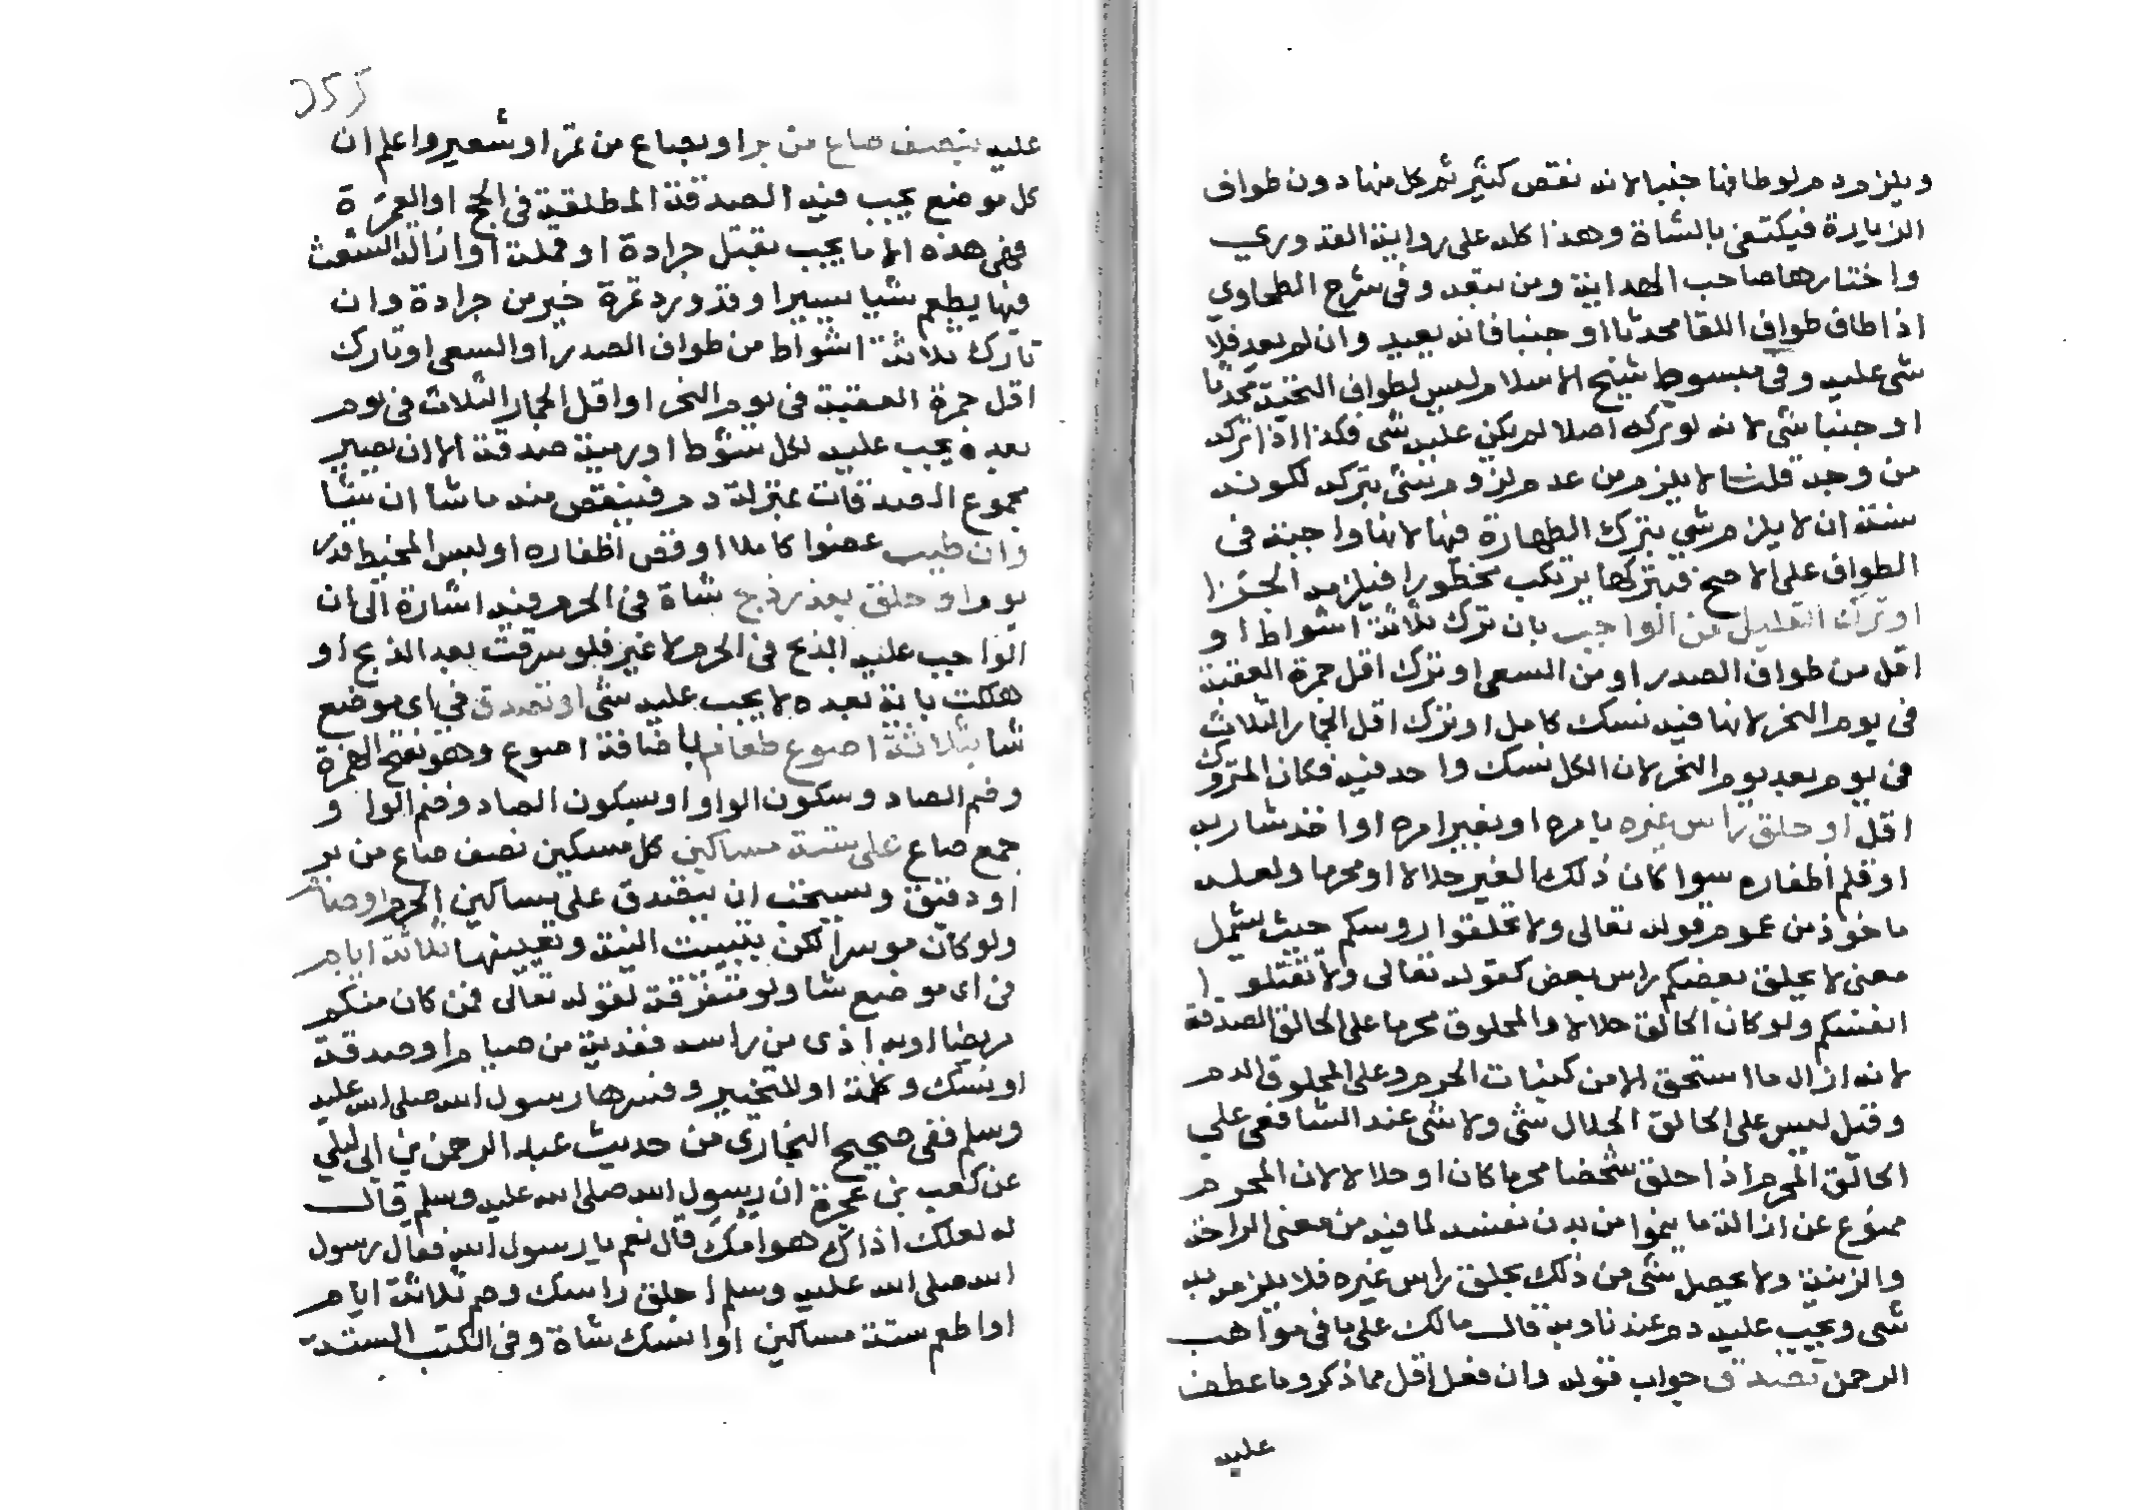 ويلزم دم لو طافها جنبا لانه نقص كثير ثم كل منها دون طواف
الزيارة فيكتفى بالشاة وهذا كله على رواية القدوري
واختارها صاحب الهداية ومن بعده وفى شرح الطحاوي
اذا طاف طواف اللقا محدثا او جنبا فانه يعيد وان لم يعد فلا
شى عليه وفى مبسوط شيخ الاسلام ليس لطواف التحية محدثا
او جنبا شى لانه لو تركه اصلا لم يكن عليه شى فكذا اذا تركه
من وجه قلنا لا يلزم من عدم لزوم شى بتركه لكونه
سنة ان لا يلزم شي بترك الطهارة فيها لانها واجبة فى
الطواف على الاصح فبتركها يرتكب محظورا فيلزمه الجزا
او ترك القليل من الواجب بان ترك ثلاثة اشواط او
اقل من طواف الصدر او من السعى او ترك اقل جمرة العقبة
فى يوم النحر لانها فيه نسك كامل او ترك اقل الجمار الثلاث
فى يوم بعد يوم النحر لان الكل نسك واحد فيه فكان المتروك
اقل او حلق راس غيره بامره او بغير امره او اخذ شاربه
او قلم اظفاره سوا كان ذلك الغير حلالا او محرما ولعله
ماخوذ من عموم قوله تعالى ولا تحلقوا روسكم حيث يشمل
معنى لا يحلق بعضكم راس بعض كقوله تعالى ولا تقتلوا
انفسكم ولو كان الحالق حلالا والمحلوق محرما على الحالق الصدقة
لانه ازال ما استحق الامن كنبات الحرم وعلى المحلوق الدم
وقيل ليس على الحالق الحلال شى ولا شى عند الشافعى علي
الحالق المحرم اذا حلق شخصا محرما كان او حلالا لان المحرم
ممنوع عن ازالة ما ينموا من بدن نفسه لما فيه من معنى الراحة
والزينة ولا يحصل شى من ذلك بحلق راس غيره فلا يلزمه به
شى ويجب عليه دم عندنا وبه قال مالك على ما فى مواهب
الرحمن تصدق جواب قوله وان فعل اقل مما ذكر وما عطف
عليه
255
عليه بنصف صاع من بر او بصاع من تمر او شعير واعلم ان
كل موضع يجب فيه الصدقة المطلقة فى الحج او العمرة
ففى هذه الا ما يجب بقتل جرادة او قملة او ازالة الشعث
فيها يطعم شيا يسيرا وقد ورد تمرة خير من جرادة وان
تارك ثلاثة اشواط من طواف الصدر او السعى او تارك
اقل جمرة العقبة فى يوم النحر او اقل الجمار الثلاث فى يوم
بعده يجب عليه لكل شوط او رمية صدقة الا ان يصير
مجموع الصدقات بمنزلة دم فينقص منه ما شا ان شا
وان طيب عضوا كاملا او قص اظفاره او لبس المخيط قدر
يوم او حلق بعذر ذبح شاة فى الحرم فيه اشارة الى ان
الواجب عليه الذبح فى الحرم لا غير فلو سرقت بعد الذبح او
هلكت بافة بعده لا يجب عليه شى او تصدق في اى موضع
شا بثلاثة اصوع طعام باضافة اصوع وهو بفتح الهمزة
وضم الصاد وسكون الواو او بسكون الصاد وضم الواو
جمع صاع على ستة مساكين كل مسكين نصف صاع من بر
او دقيق ويستحب ان يتصدق على مساكين الحرم او صام
ولو كان موسرا لكن بتبييت النية وتعيينها ثلاثة ايام
فى اى موضع شا ولو متفرقة لقوله تعالى فمن كان منكم
مريضا او به اذى من راسه ففدية من صيام او صدقة
او نسك وكلمة او للتخيير وفسرها رسول الله صلى الله عليه
وسلم ففى صحيح البخارى من حديث عبد الرحمن بن ابى ليلي
عن كعب بن عجرة ان رسول الله صلى الله عليه وسلم قال
له لعلك اذاك هوامك قال نعم يا رسول الله فقال رسول
الله صلى الله عليه وسلم احلق راسك وصم ثلاثة ايام
او اطعم ستة مساكين او انسك شاة وفى الكتب الستة